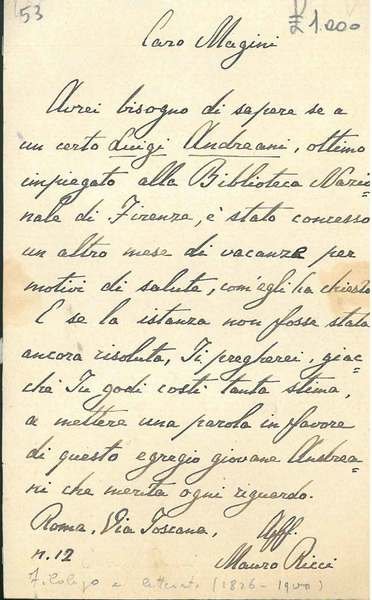 53
£ 1.000
Caro Magini
Avrei bisogno di sapere se a
un certo Luigi Andreani, ottimo
impiegato alla Biblioteca Nazio=
nale di Firenze, è stato concesso
un altro mese di vacanze per
motivi di salute, com'egli ha chiesto.
E se la istanza non fosse stata
ancora risoluta, Ti pregherei, giac=
chè Tu godi costì tanta stima,
a mettere una parola in favore
di questo egregio giovane Andrea=
ni che merita ogni riguardo.
Roma, Via Toscana, Aff.
n. 12 Mauro Ricci
Filologo e letterato (1826-1900)